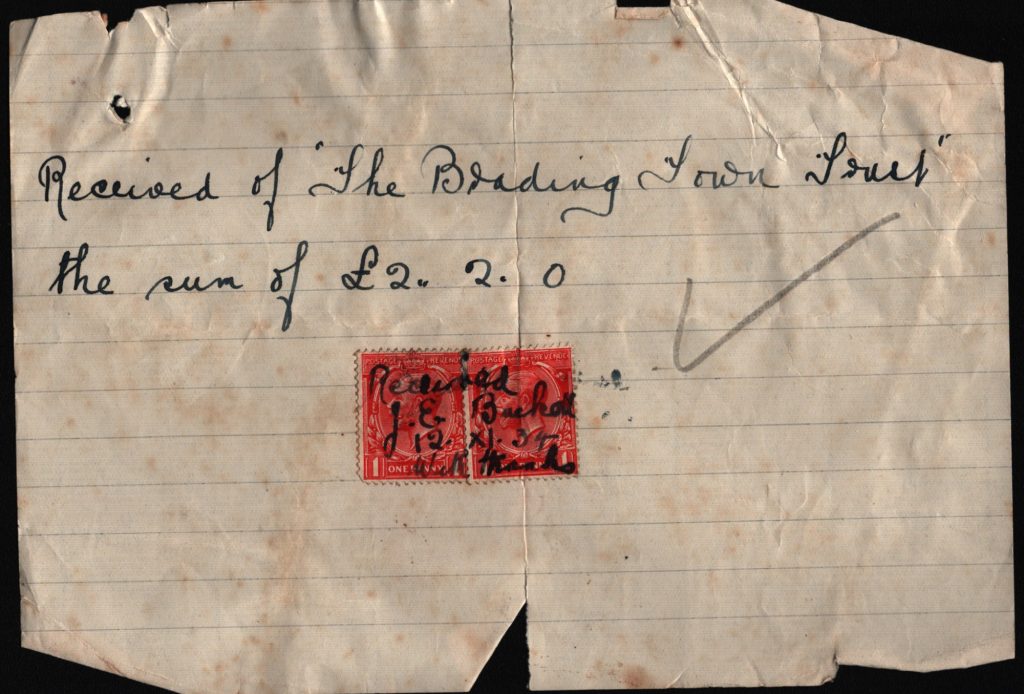 Received of "The Brading Town Trust"
the sum of £2.. 2. 0
POSTAGE REVENUE POSTAGE REVENUE
Received
J. E.
12. XI. 34
With thanks
1 ONE PENNY 1